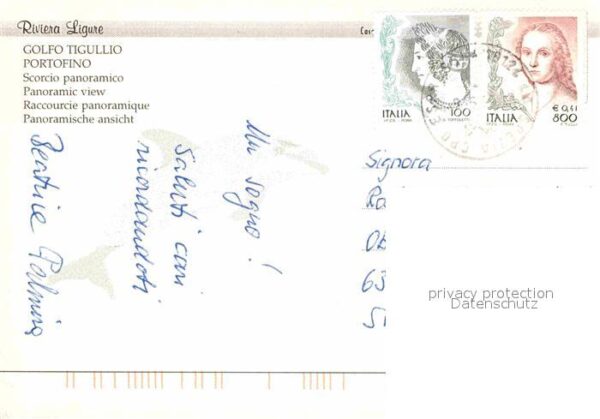 Riviera Ligure
GOLFO TIGULLIO
PORTOFINO
Scorcio panoramico
Panoramic view
Raccourcie panoramique
Panoramische ansicht
Un sogno!
Saluti cari
ricordandoti
Beatrice Palmira
ITALIA
100
ITALIA
€ 0,41
800
Signora
Ra
Ob
63
privacy protection
Datenschutz